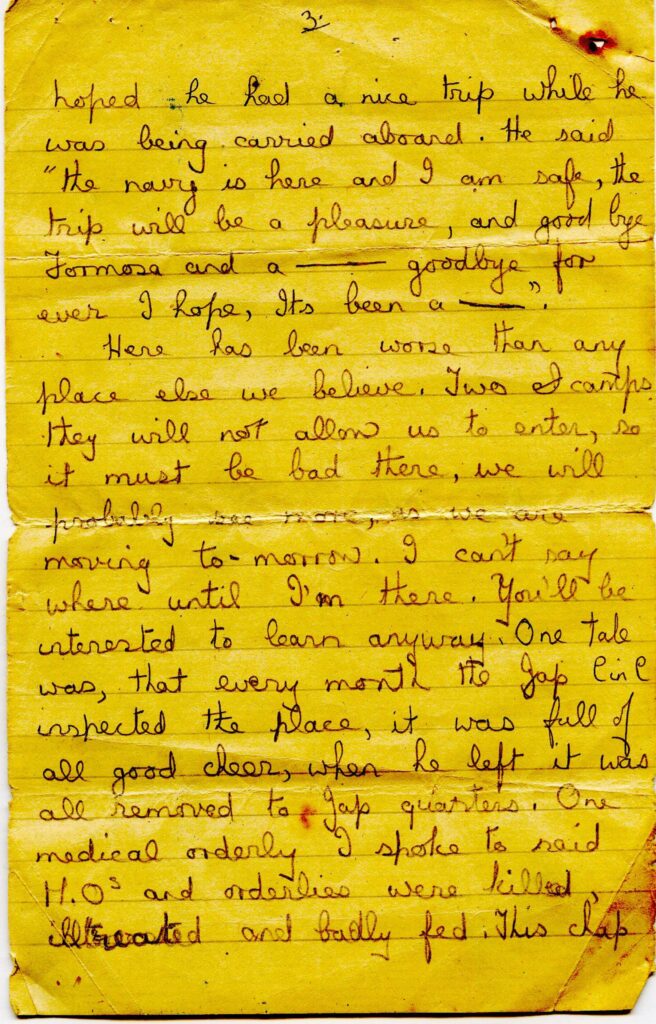 3.
hoped he had a nice trip while he
was being carried aboard. He said
"the navy is here and I am safe, the
trip will be a pleasure, and good bye
Formosa and a —— goodbye for
ever I hope, Its been a ——".
Here has been worse than any
place else we believe. Two camps
they will not allow us to enter, so
it must be bad there, we will
probably see more, as we are
moving to-morrow. I can't say
where until I'm there. You'll be
interested to learn anyway. One tale
was, that every month the Jap C in C
inspected the place, it was full of
all good cheer, when he left it was
all removed to Jap quarters. One
medical orderly I spoke to said
M.Os and orderlies were killed,
illtreated and badly fed. This chap